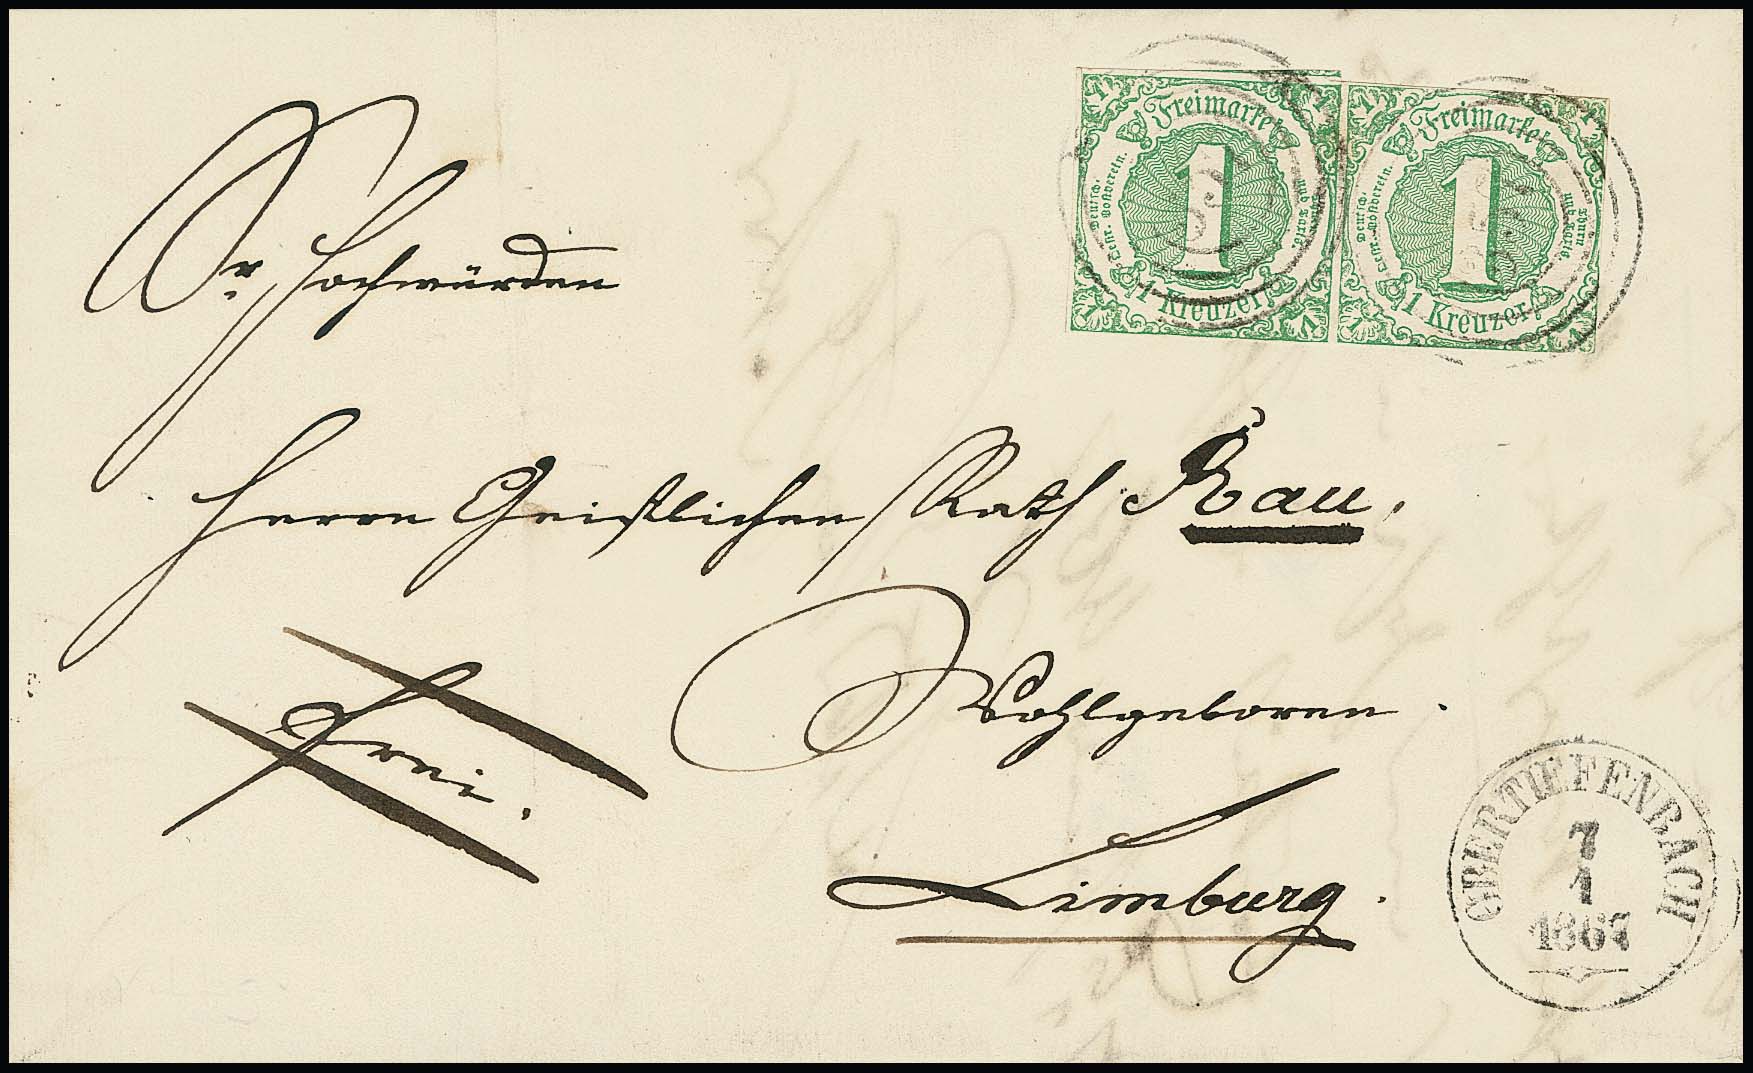 Freimarke
Deutsch-Oestr. Postverein.
1
Thurn und Taxis.
1 Kreuzer.
Freimarke
Deutsch-Oestr. Postverein.
1
Thurn und Taxis.
1 Kreuzer.
Sr Hochwürden
Herrn Geistlichen Rath Rau,
Wohlgeboren.
frei.
Limburg.
OBERTIEFENBACH
7
1
1867